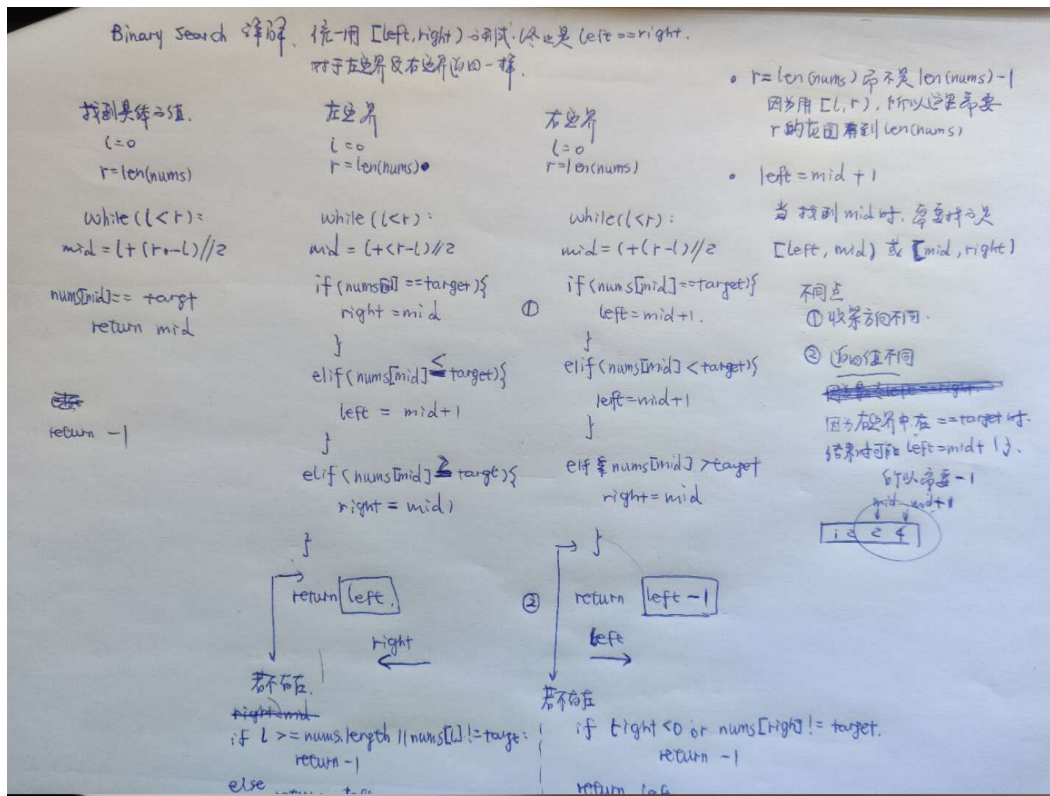 Binary Search 详解. 统一用 [left, right) 的形式. 终止是 left == right.
对于左边界及右边界返回一样.
找到具体的值.
l=0
r=len(nums)
while(l<r):
mid = l+(r-l)//2
nums[mid]== targt
return mid
return -1
左边界
l=0
r=len(nums)
while(l<r):
mid = l+(r-l)//2
if(nums[mid]==target){
right = mid
}
elif(nums[mid] < target){
left = mid+1
}
elif(nums[mid] > targt){
right = mid)
}
return left.
right
若不存在.
if l >= nums.length || nums[l] != targe:
return -1
else
右边界
l=0
r=len(nums)
while(l<r):
mid = l+(r-l)//2
① if(nums[mid]==target){
left=mid+1.
}
elif(nums[mid] < target){
left=mid+1
}
elif nums[mid] > target
right = mid
}
② return left-1
left
若不存在
if right<0 or nums[right] != target.
return -1
return
• r=len(nums) 而不是 len(nums)-1
因为用 [l, r), 所以这里需要
r 的范围看到 len(nums)
• left = mid + 1
当找到 mid 时, 需要找的是
[left, mid) 或 [mid, right)
不同点
① 收紧方向不同.
② 返回值不同
因为右边界中在 ==target 时.
结束时可能 left=mid+1
所以需要 -1
mid mid+1
1 2 2 4